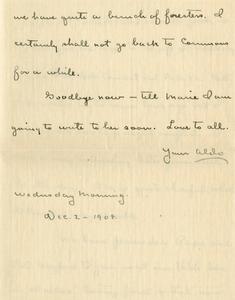 we have quite a bunch of foresters. I
certainly shall not go back to Commons
for a while.
Goodbye now – tell Marie I am
going to write to her soon. Love to all.
Your Aldo
Wednesday Morning.
Dec. 2 - 1908.